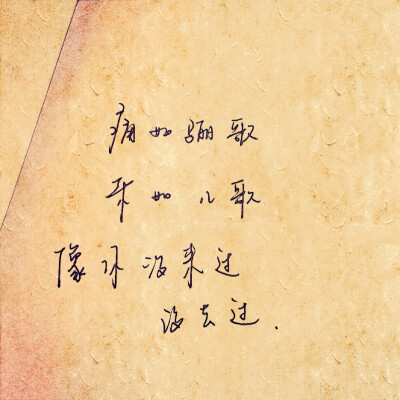 痛如骊歌
如儿歌
像你没来过
没去过.